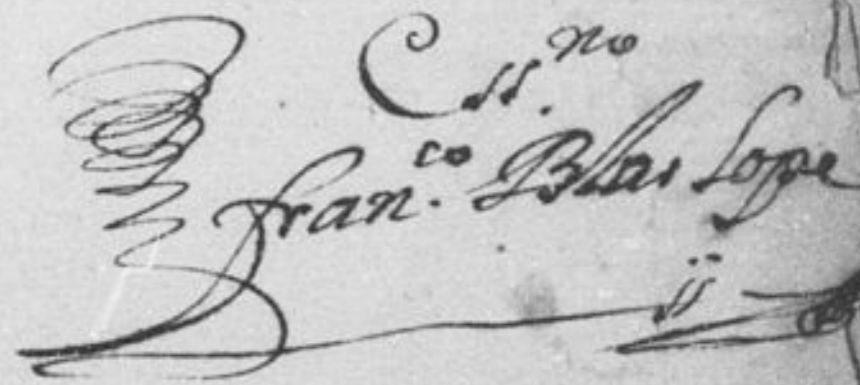 Essno
franco Blas Lope